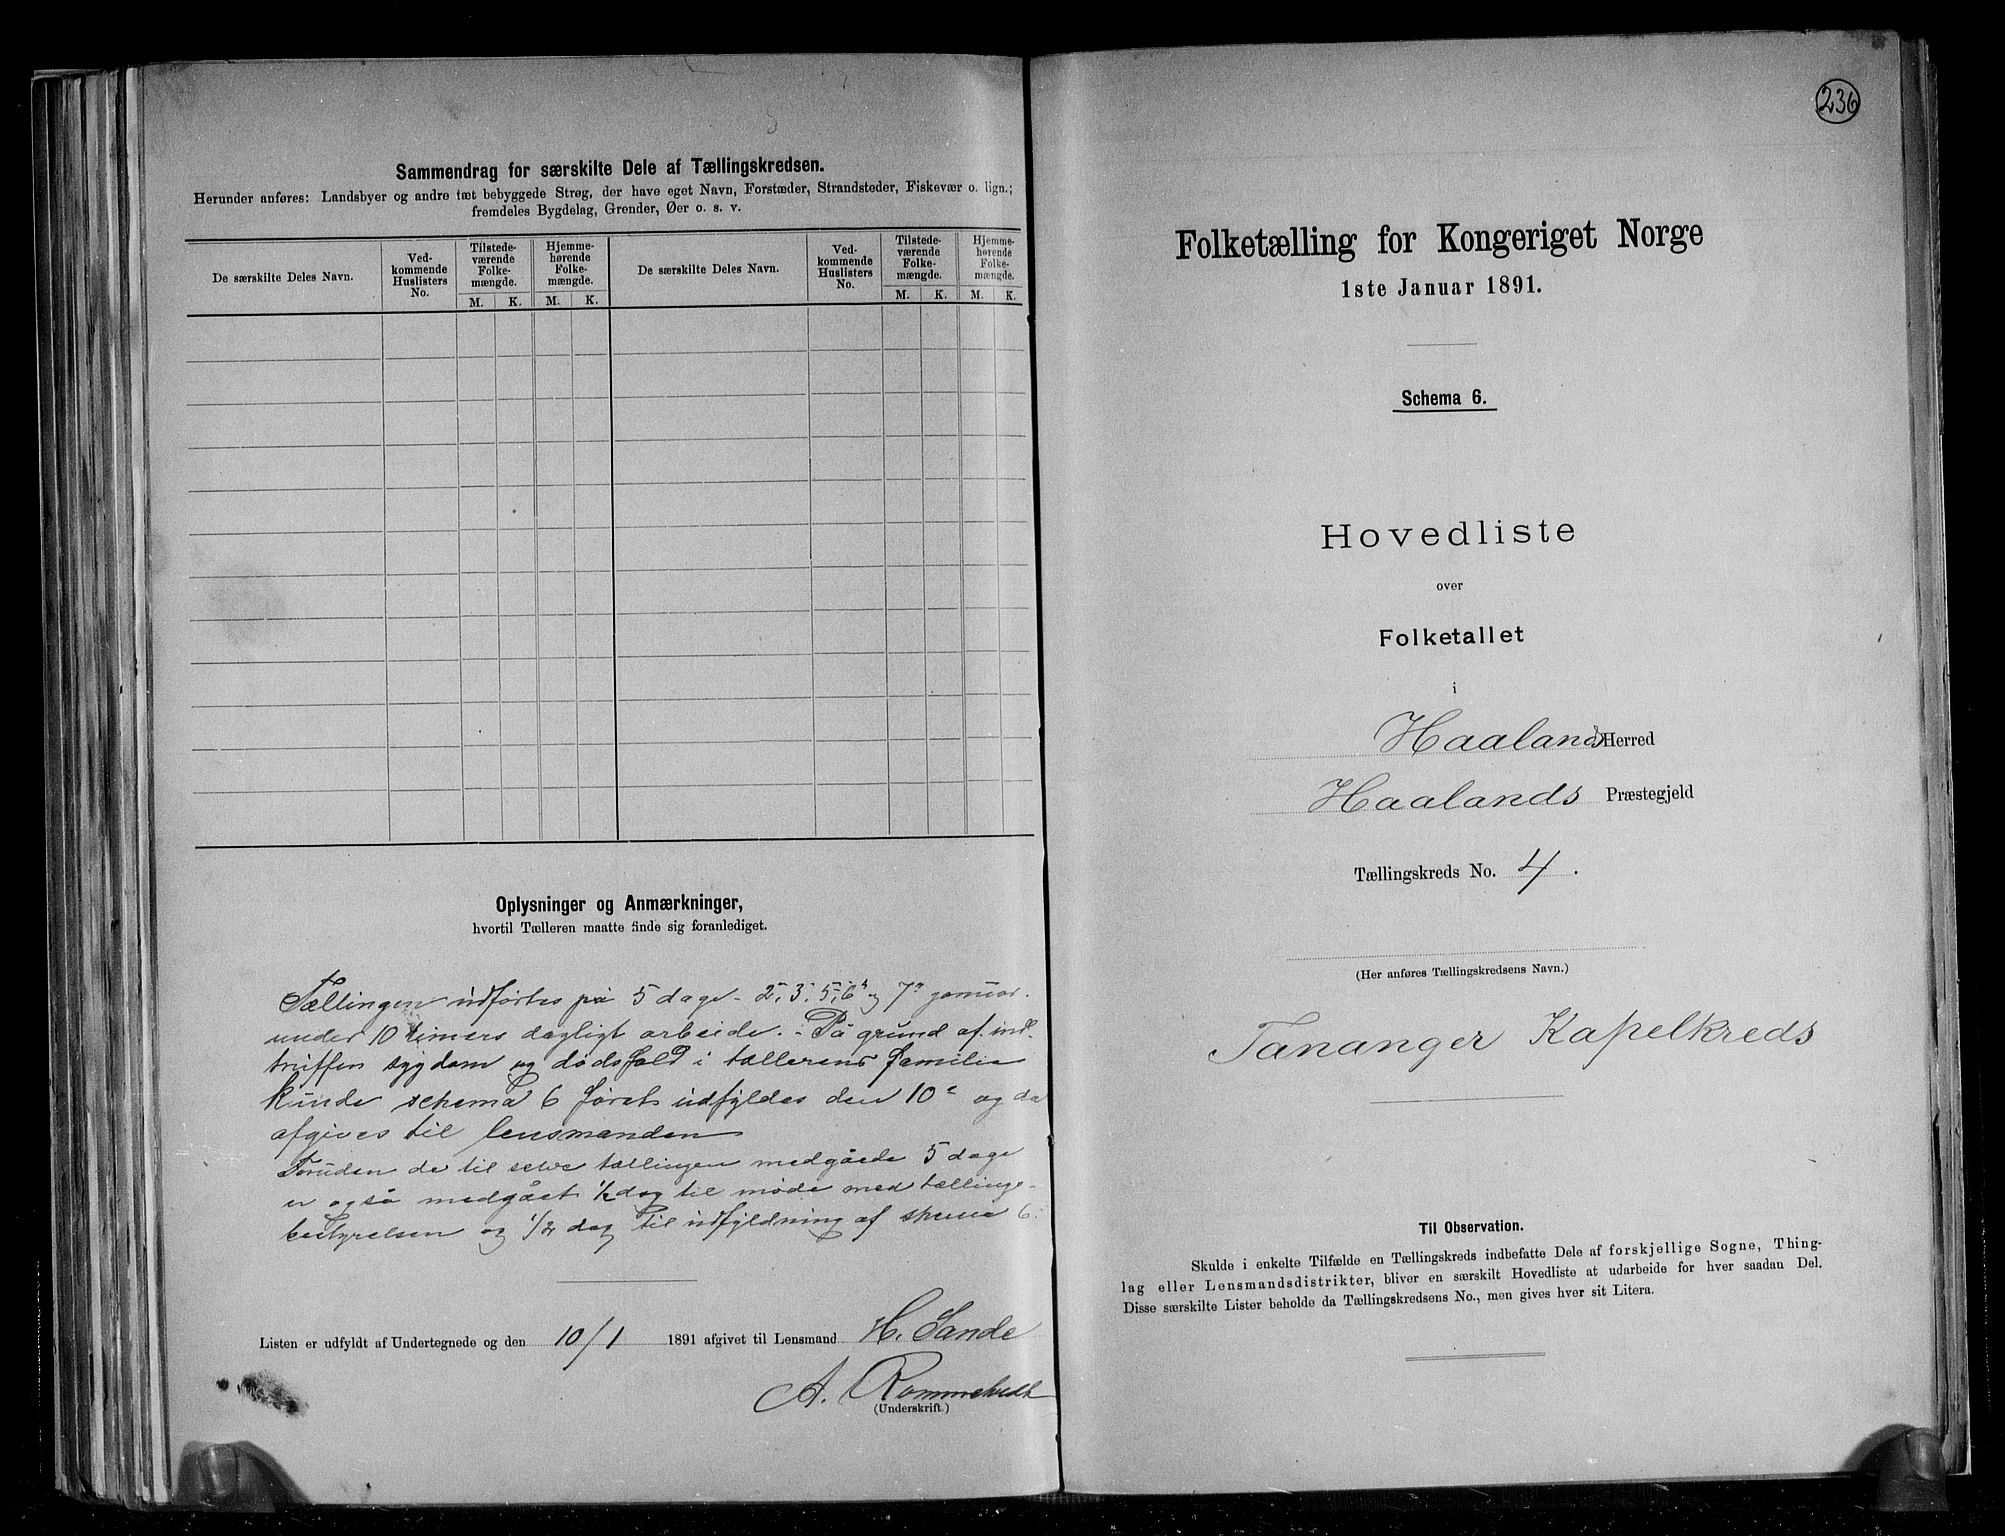 Sammendrag for særskilte Dele af Tællingskredsen.
Herunder anføres: Landsbyer og andre tæt bebyggede Strøg, der have eget Navn, Forstæder, Strandsteder, Fiskevær o. lign.;
fremdeles Bygdelag, Grender, Øer o. s. v.
De særskilte Deles Navn.
Ved-
kommende
Huslisters
No.
Tilstede-
værende
Folke-
mængde.
M. K.
Hjemme-
hørende
Folke-
mængde.
M. K.
De særskilte Deles Navn.
Ved-
kommende
Huslisters
No.
Tilstede-
værende
Folke-
mængde.
M. K.
Hjemme-
hørende
Folke-
mængde.
M. K.
Oplysninger og Anmærkninger,
hvortil Tælleren maatte finde sig foranlediget.
Tællingen udførtes på 5 dage - 2, 3, 5, 6 og 7 januar.
under 10 timers dagligt arbeide. - På grund af ind-
truffen sygdom og dødsfald i tællerens familie
kunde schema 6 først udfyldes den 10e og da
afgives til lensmanden
Foruden de til selve tællingen medgåede 5 dage
er også medgået 1/2 dag til møde med tællings-
bestyrelsen og 1/2 dag til udfyldning af skema 6.
Listen er udfyldt af Undertegnede og den 10/1 1891 afgivet til Lensmand H. Sande
A. Rommetvedt
(Underskrift.)
236
Folketælling for Kongeriget Norge
1ste Januar 1891.
Schema 6.
Hovedliste
over
Folketallet
i
Haalands Herred
Haalands Præstegjeld
Tællingskreds No. 4.
(Her anføres Tællingskredsens Navn.)
Tananger Kapelkreds
Til Observation.
Skulde i enkelte Tilfælde en Tællingskreds indbefatte Dele af forskjellige Sogne, Thing-
lag eller Lensmandsdistrikter, bliver en særskilt Hovedliste at udarbeide for hver saadan Del.
Disse særskilte Lister beholde da Tællingskredsens No., men gives hver sit Litera.